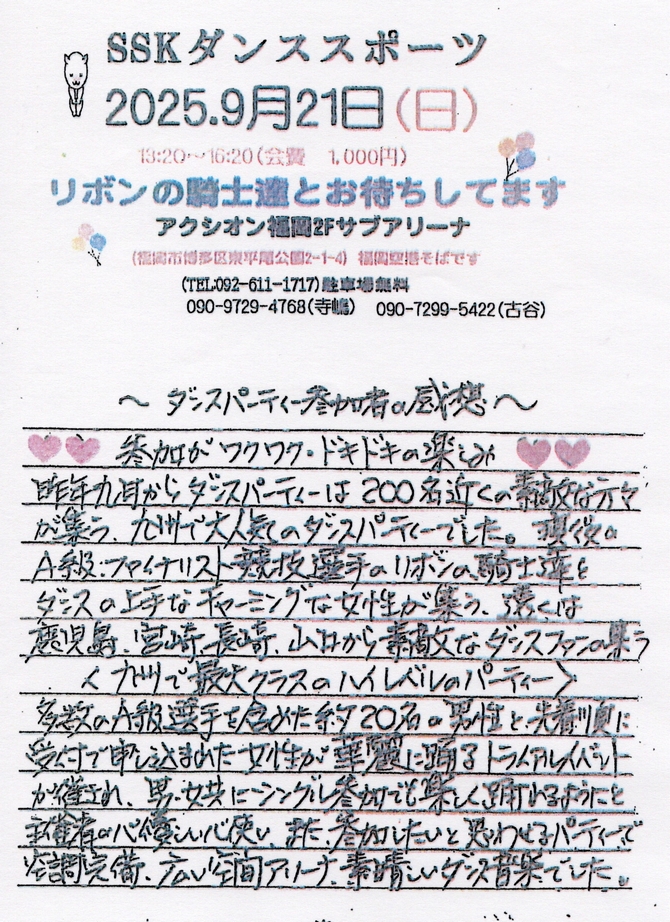 SSKダンススポーツ
2025.9月21日(日)
13:20～16:20(会費 1,000円)
リボンの騎士達とお待ちしてます
アクシオン福岡2Fサブアリーナ
(福岡市博多区東平尾公園2-1-4) 福岡空港そばです
(TEL:092-611-1717)駐車場無料
090-9729-4768(寺嶋) 090-7299-5422(古谷)
～ダンスパーティー参加者の感想～
参加がワクワク・ドキドキの楽しみ
昨年九月からダンスパーティーは200名近くの素敵な方々
が集う、九州で大人気のダンスパーティーでした。現役の
A級・ファイナリスト競技選手のリボンの騎士達と
ダンスの上手なチャーミングな女性が集う、遠くは
鹿児島、宮崎、長崎、山口から素敵なダンスファンの集う
＜九州で最大クラスのハイレベルのパーティー＞
多数のA級選手を含めた約20名の男性と、先着順に
受付で申し込まれた女性が華麗に踊るトライアルイベント
が催され、男女共にシングル参加でも楽しく踊れるようにと
主催者の心優しい心使い、また、参加したいと思わせるパーティーで
空調完備、広い空間アリーナ、素晴しいダンス音楽でした。